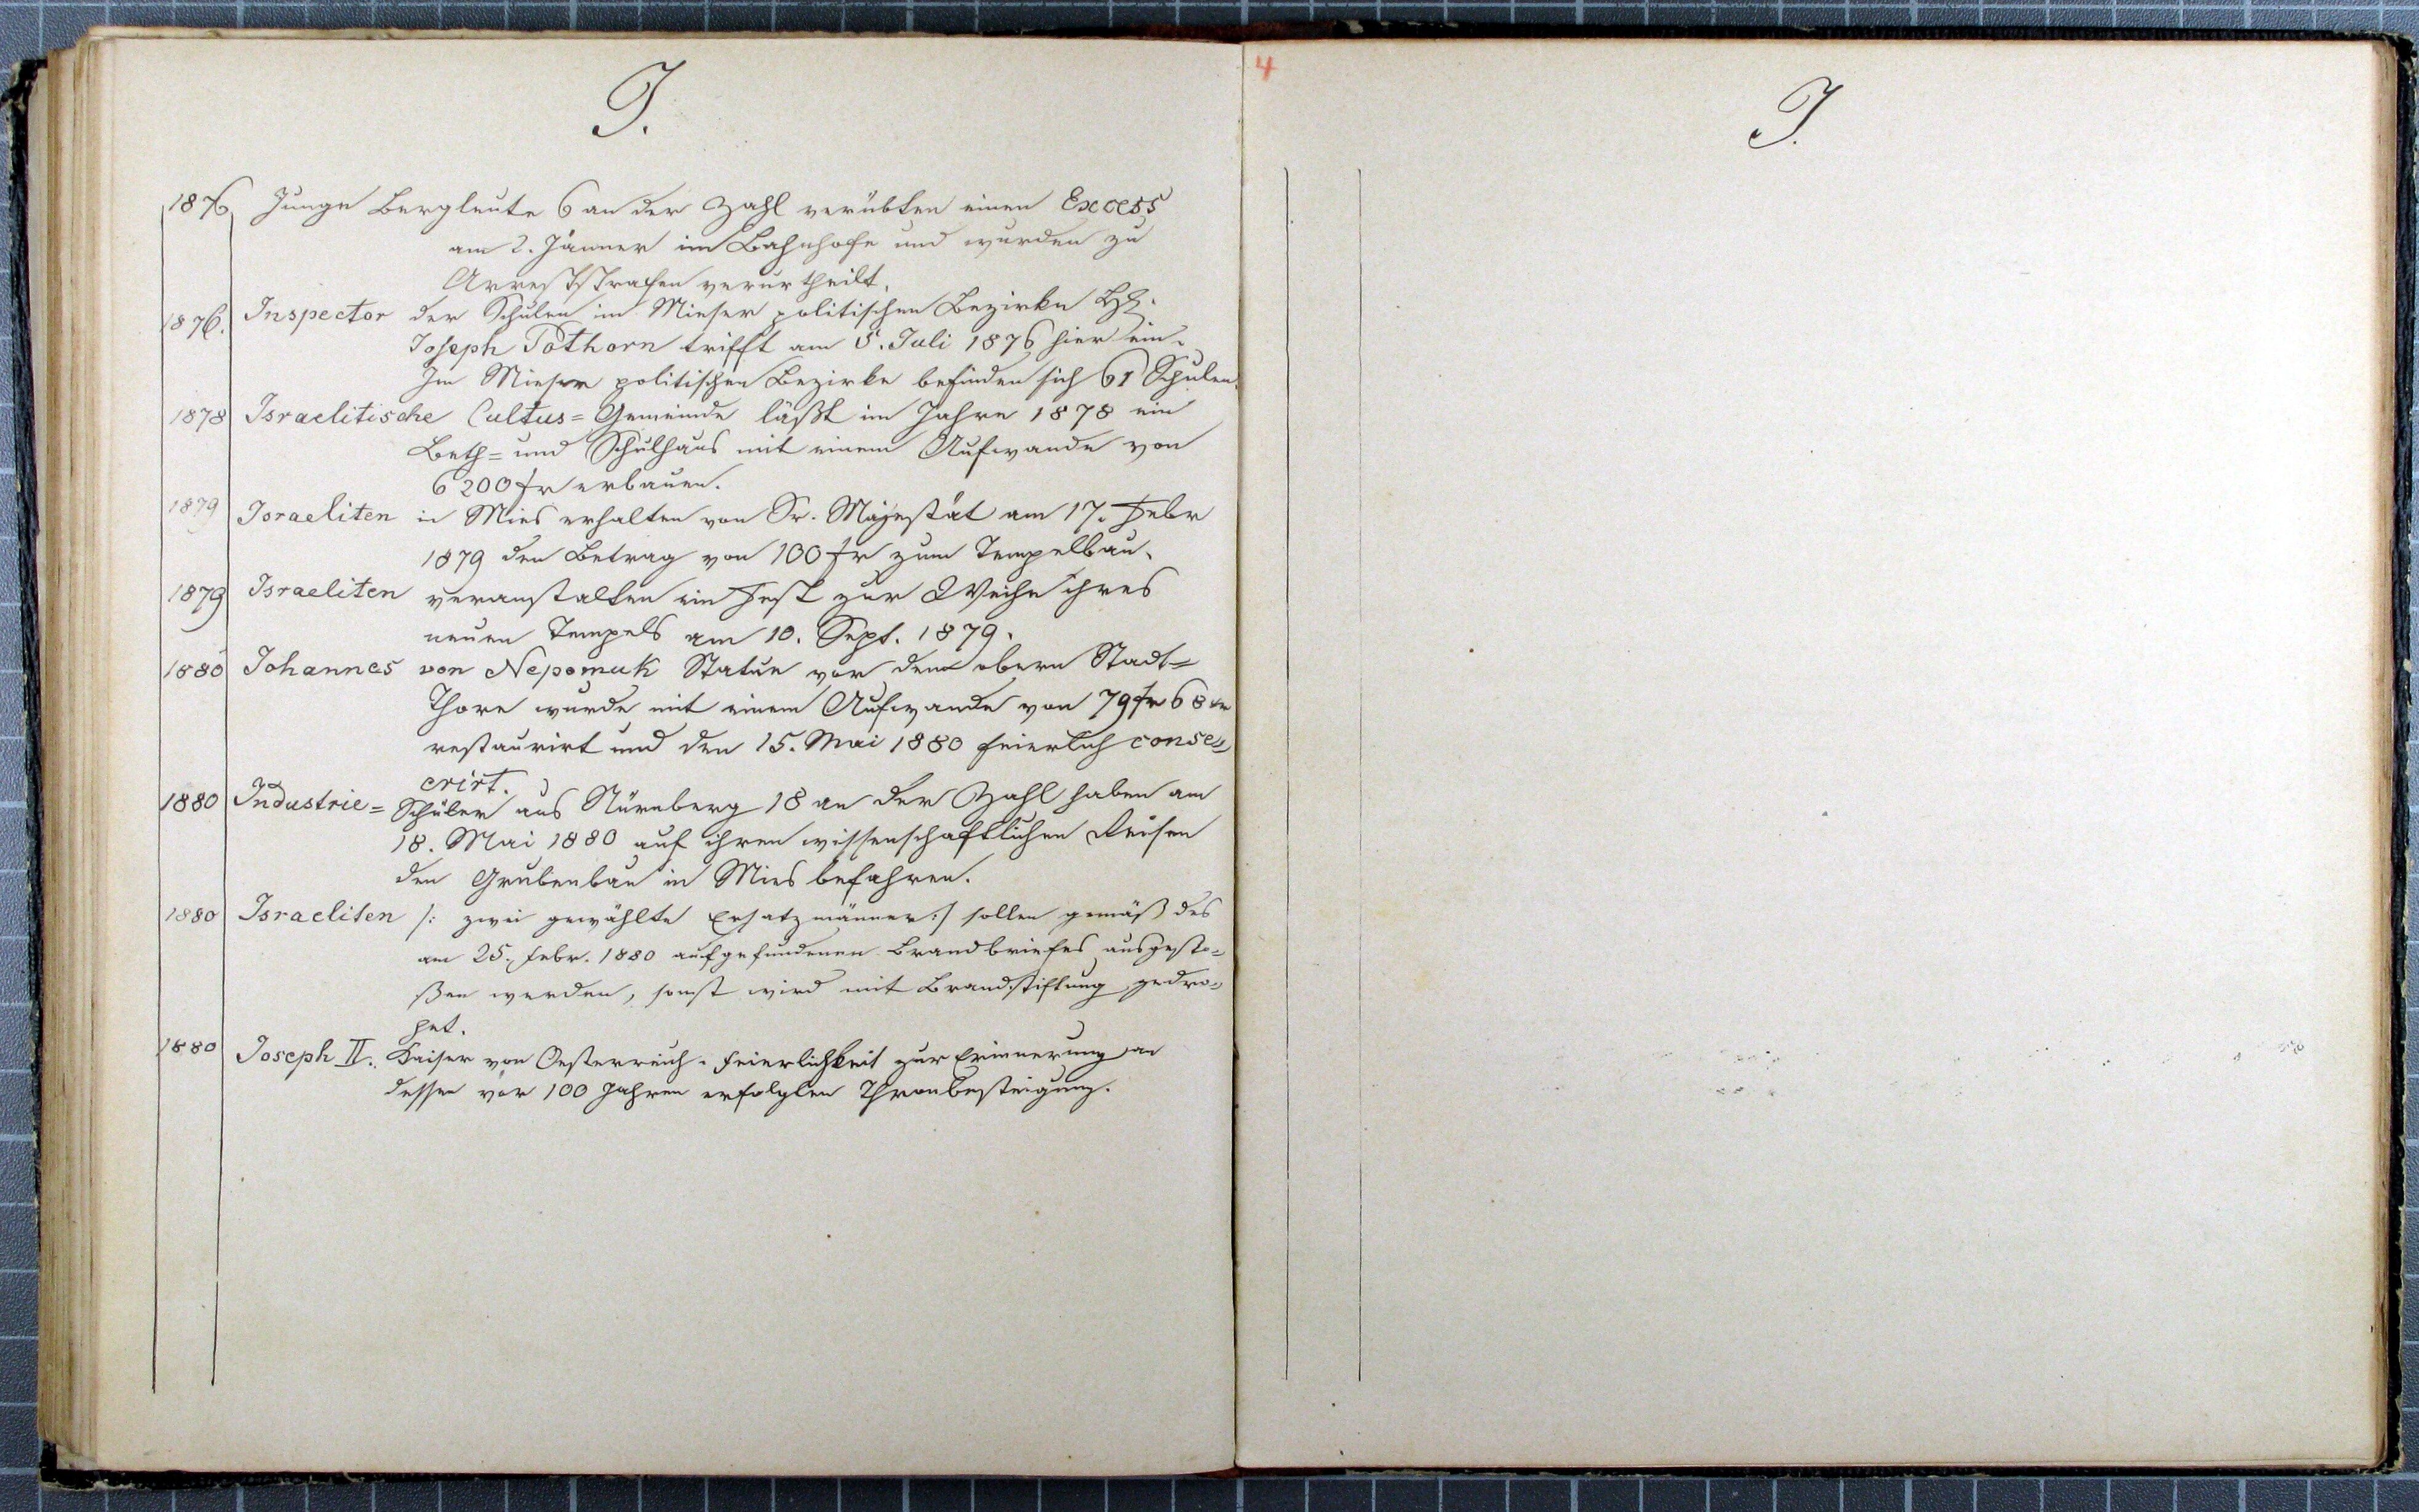 I.
1876 Junge Bergleute 6 an der Zahl verübten einen Excess
am 2. Jänner im Bahnhofe und wurden zu
Arreststrafen verurtheilt.
1876. Inspector der Schulen im Mieser politischen Bezirke
Joseph Pothorn trifft am 5. Juli 1876 hier ein.
Im Mieser politischen Bezirke befinden sich 61 Schulen.
1878 Israelitische Cultus= Gemeinde läßt im Jahre 1878 ein
Beth= und Schulhaus mit einem Aufwande von
6200 fr erbauen.
1879 Israeliten in Mies erhalten von Sr. Majestät am 17. Febr
1879 den Betrag von 100 fr zum Tempelbau.
1879 Israeliten veranstalten ein Fest zur Weihe ihres
neuen Tempels am 10. Sept. 1879.
1880 Johannes von Nepomuk Statue vor dem obern Stadt=
Thore wurde mit einem Aufwande von 79 fr 68 xr
restaurirt und den 15. Mai 1880 feierlich conse=
crirt.
1880 Industrie= Schüler aus Nürnberg 18 an der Zahl haben am
18. Mai 1880 auf ihren wissenschaftlichen Reisen
den Grubenbau in Mies befahren.
1880 Israeliten /: zwei gewählte Ersatzmänner :/ sollen gemäß des
am 25. Febr. 1880 aufgefundenen Brandbriefes ausgesto=
ßen werden, sonst wird mit Brandstiftung gedro=
het.
1880 Joseph II. Kaiser von Oesterreich. Feierlichkeit zur Erinnerung an
dessen vor 100 Jahren erfolgten Thronbesteigung.
4
I.